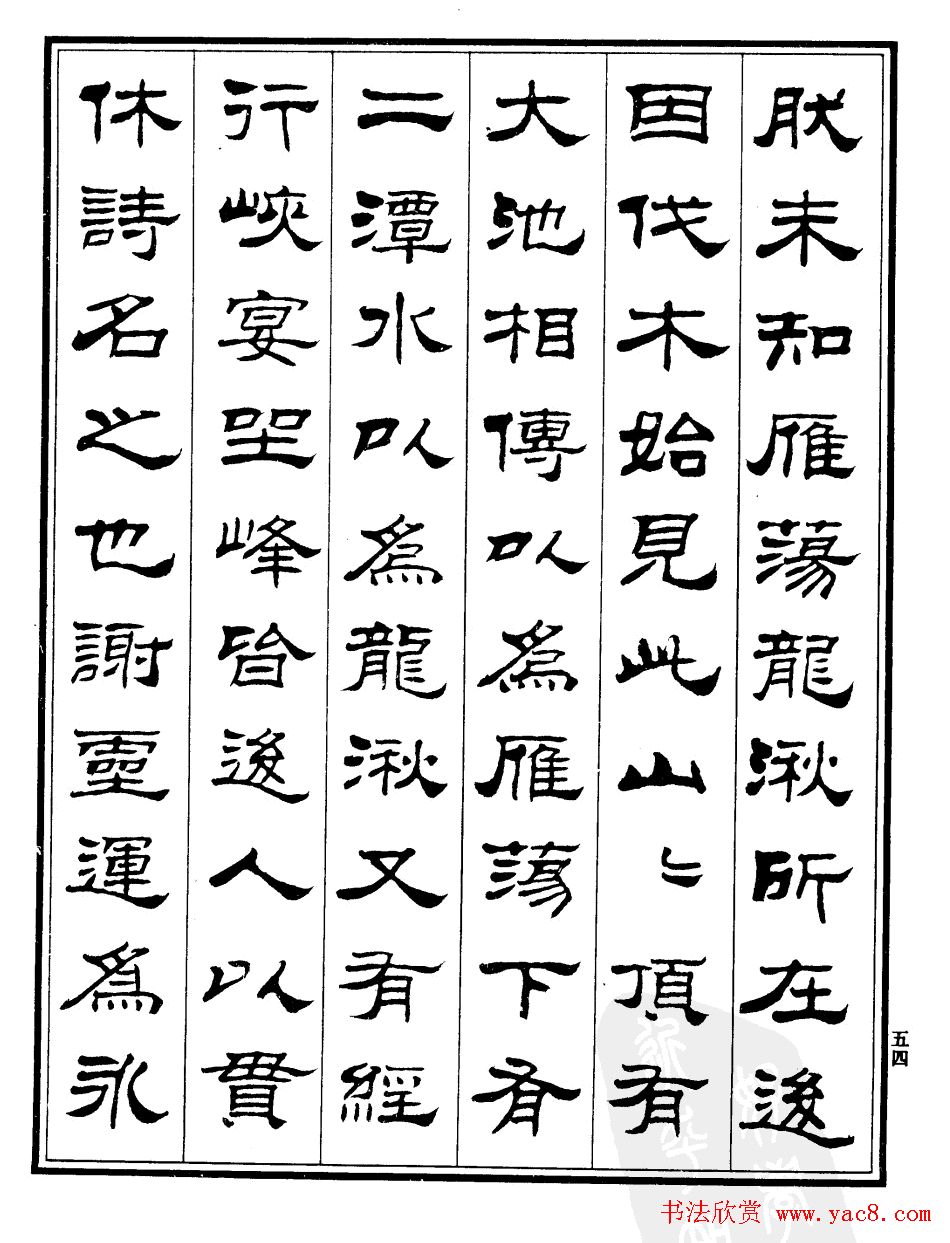 肰未知雁蕩龍湫所在後
因伐木始見此山〻頂有
大池相傳以為雁蕩下有
二潭水以為龍湫又有經
行峽宴坐峰皆後人以貫
休詩名之也謝靈運為永
五四
书法欣赏 www.yac8.com